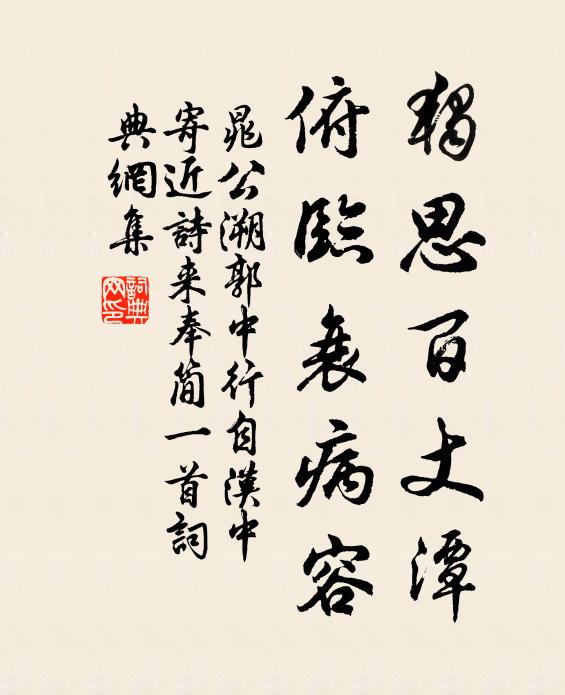 獨思百丈潭
俯臨衰病容
晁公溯郭中行自漢中
寄近詩来奉简一首詞
典網集
詞典网印